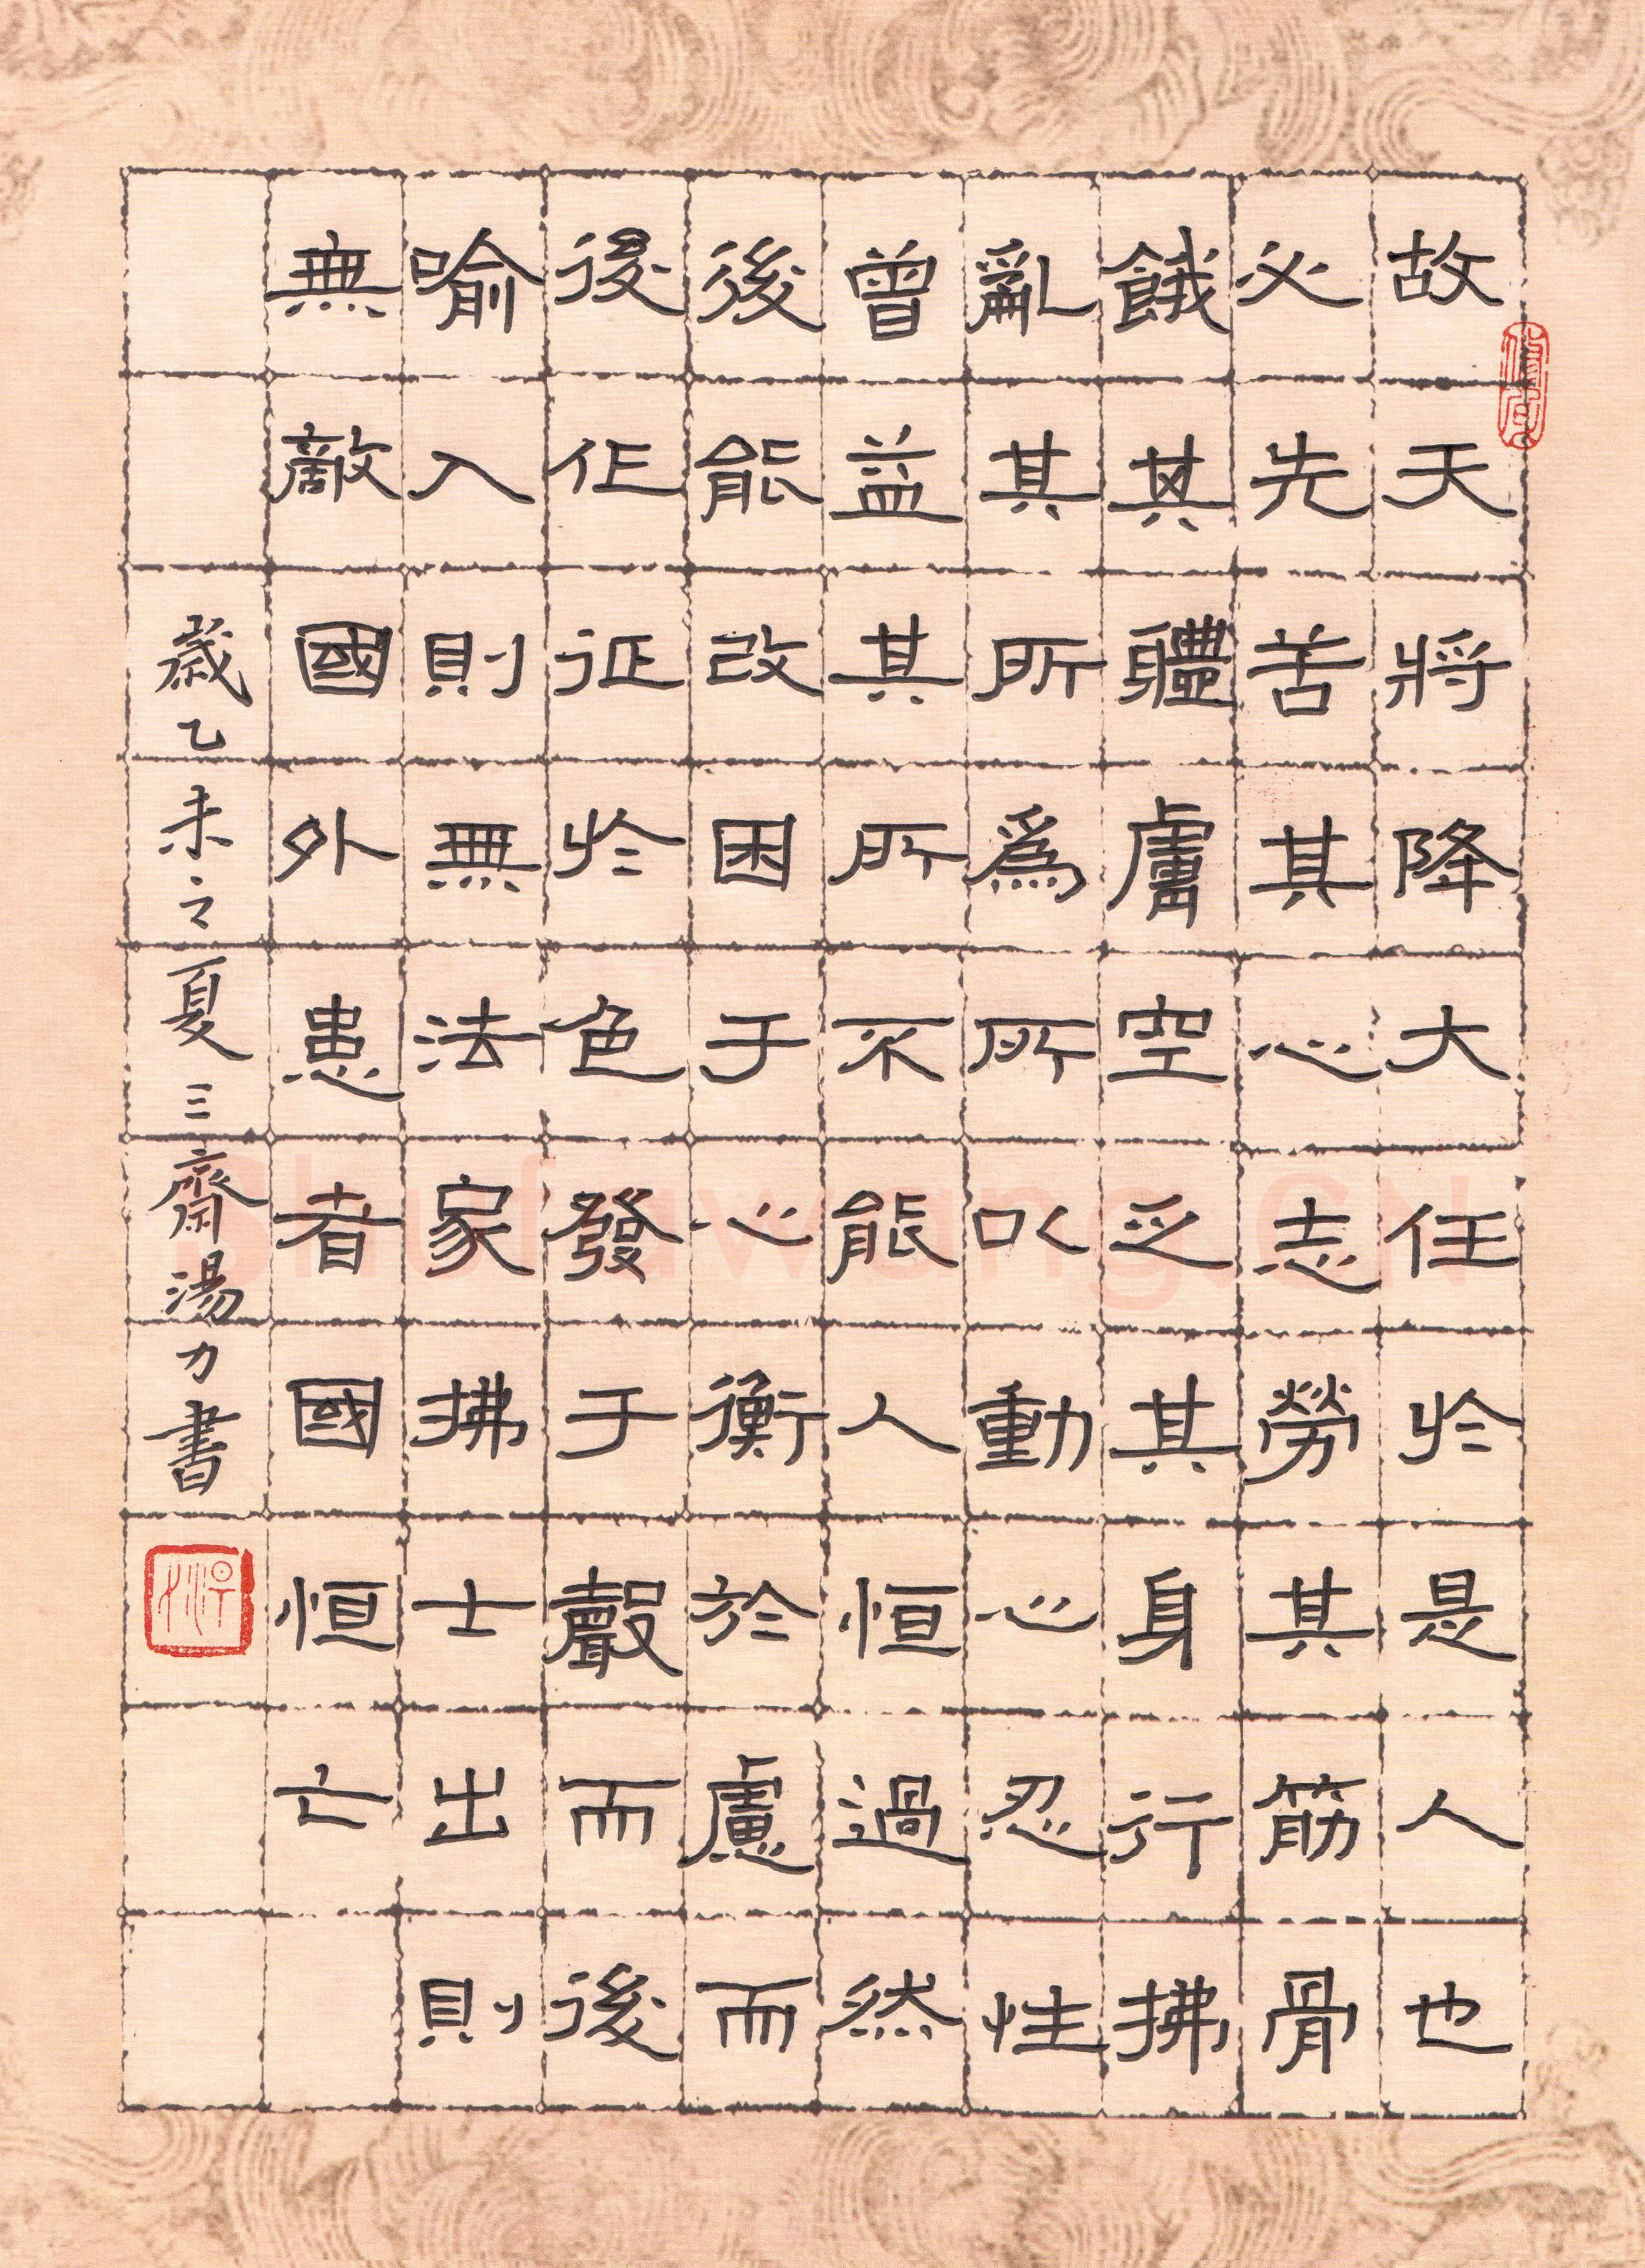 故天將降大任於是人也
必先苦其心志勞其筋骨
餓其體膚空乏其身行拂
亂其所爲所以動心忍性
曾益其所不能人恒過然
後能改困于心衡於慮而
後作征於色發于聲而後
喻入則無法家拂士出則
無敵國外患者國恒亡
歲乙未之夏三齋湯力書